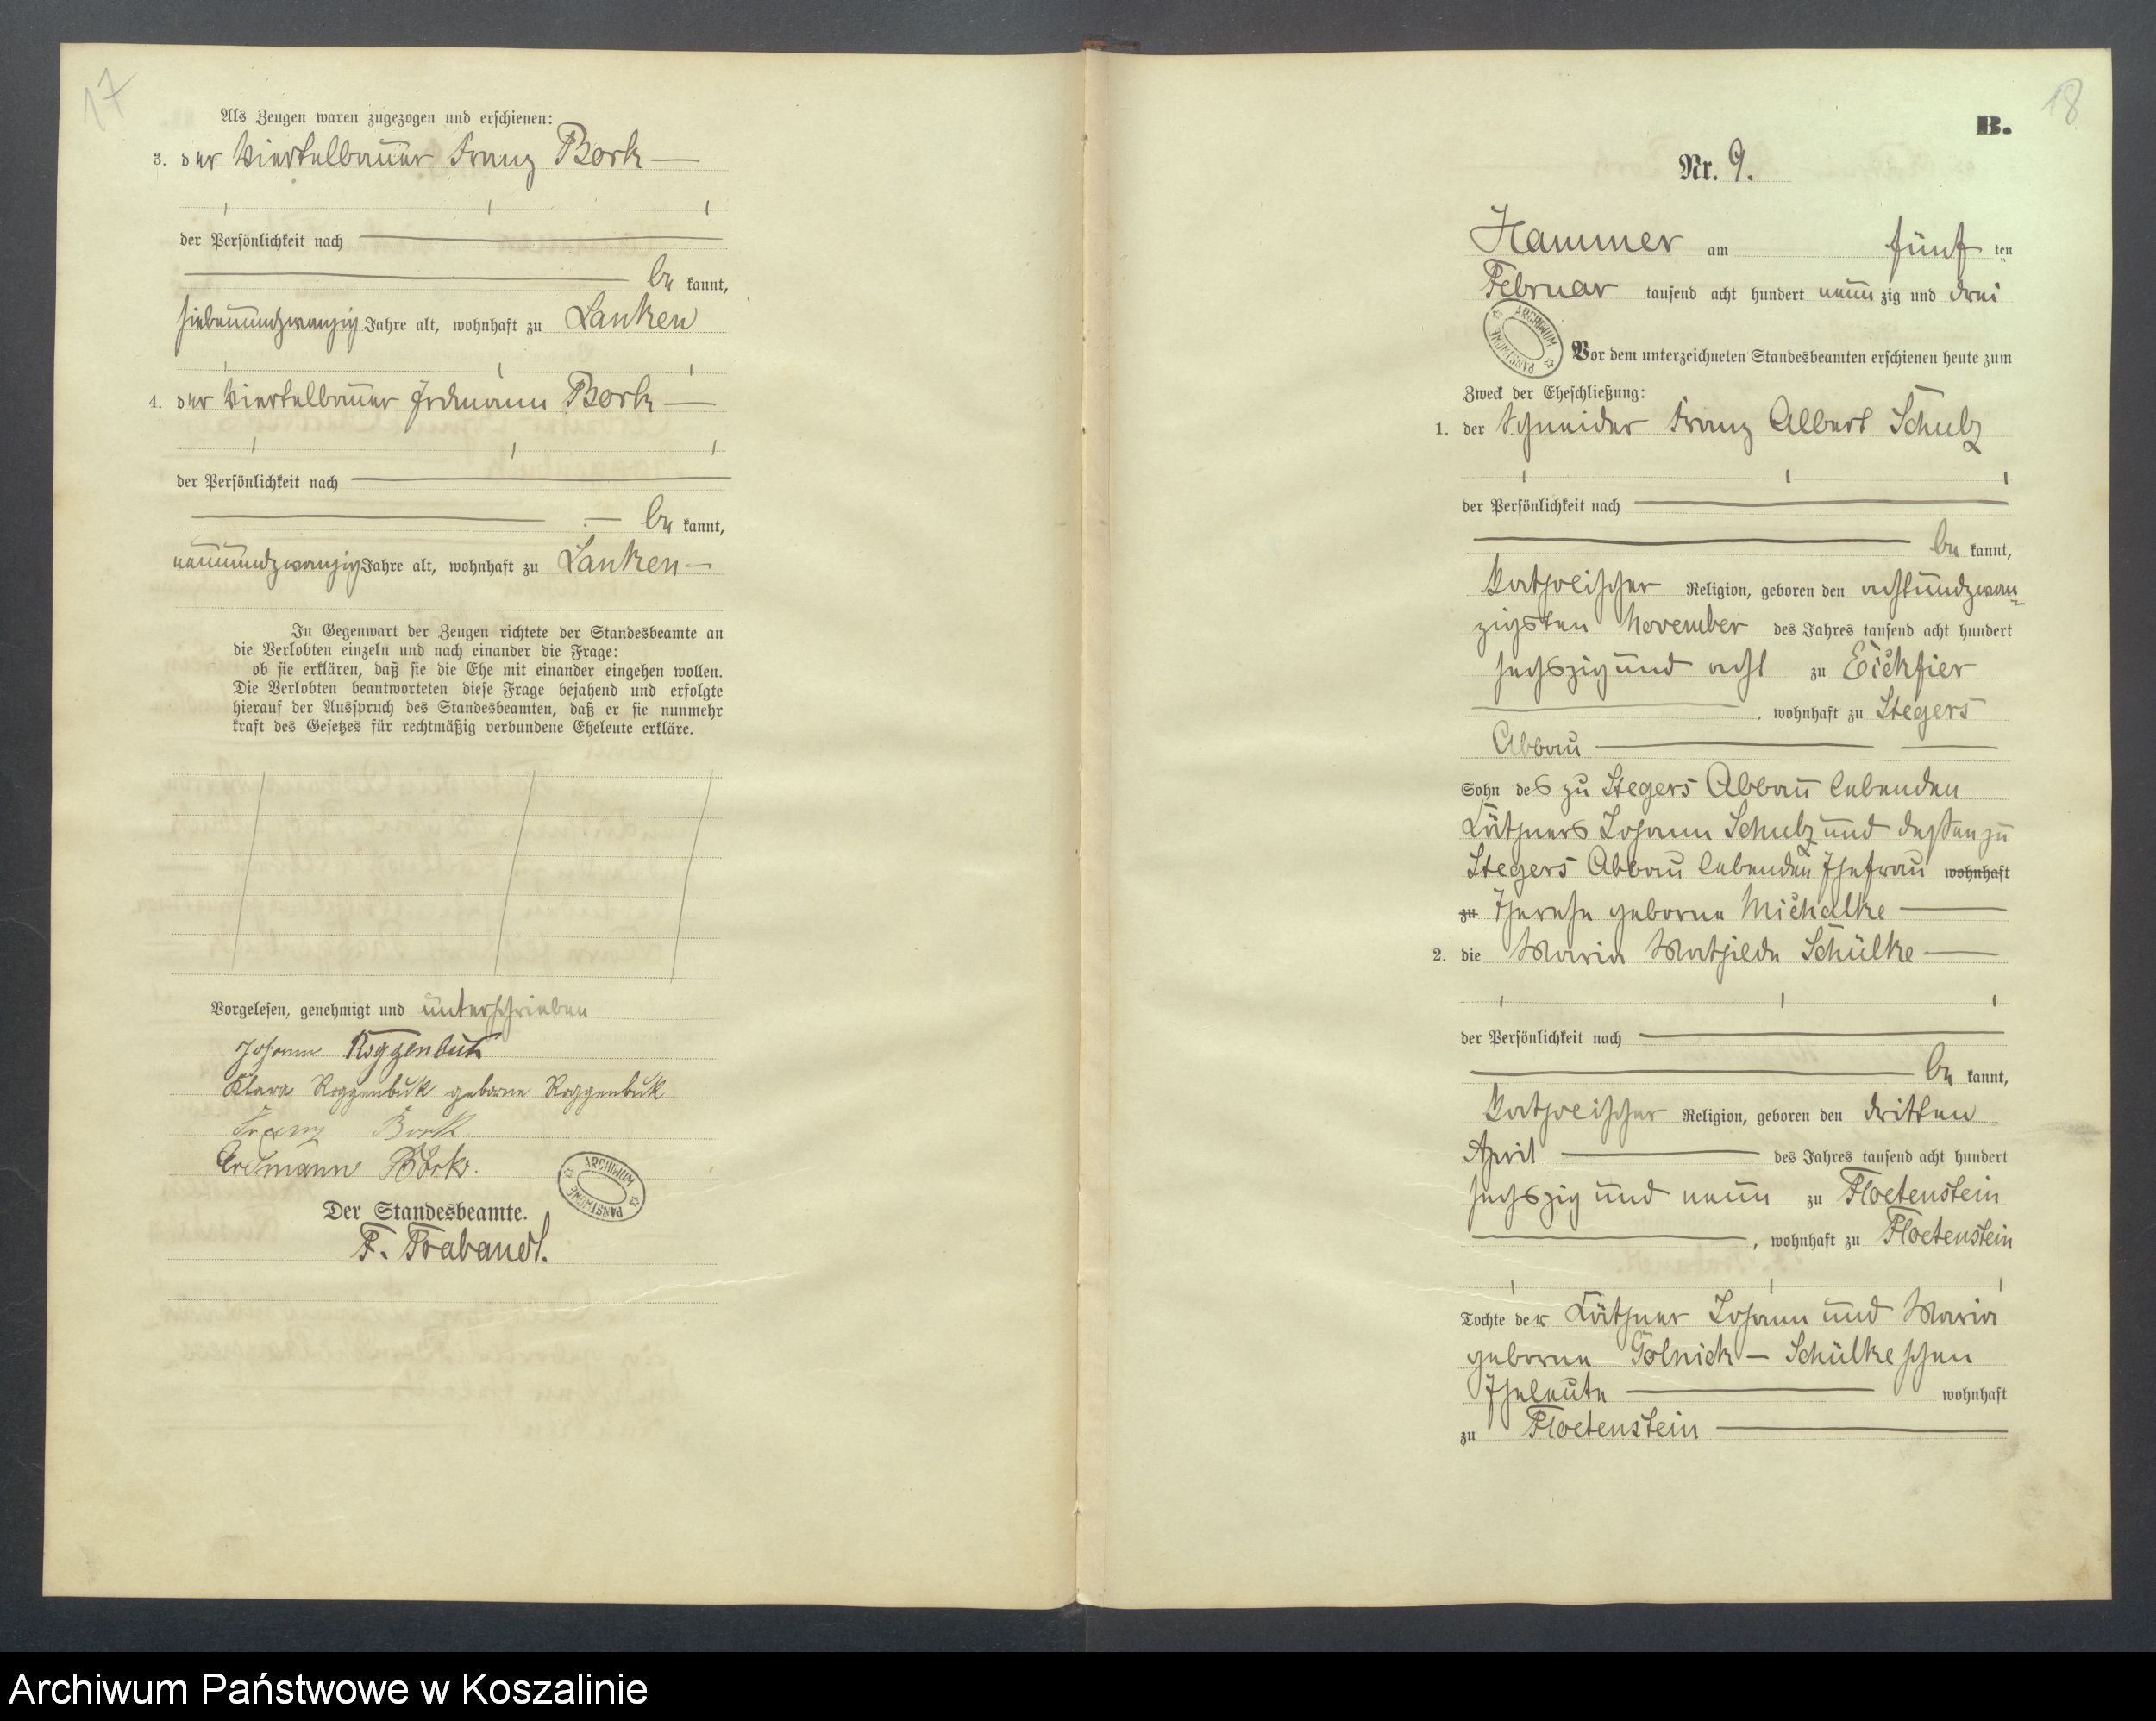 17
Als Zeugen waren zugezogen und erschienen:
3. der Viertelbauer Franz Bork
der Persönlichkeit nach
be kannt,
siebenundzwanzig Jahre alt, wohnhaft zu Lanken
4. der Viertelbauer Erdmann Bork
der Persönlichkeit nach
be kannt,
neunundzwanzig Jahre alt, wohnhaft zu Lanken
In Gegenwart der Zeugen richtete der Standesbeamte an
die Verlobten einzeln und nach einander die Frage:
ob sie erklären, daß sie die Ehe mit einander eingehen wollen.
Die Verlobten beantworteten diese Frage bejahend und erfolgte
hierauf der Ausspruch des Standesbeamten, daß er sie nunmehr
kraft des Gesetzes für rechtmäßig verbundene Eheleute erkläre.
Vorgelesen, genehmigt und unterschrieben
Johann Roggenbuk
Klara Roggenbuk geborne Roggenbuk.
Franz Bork
Erdmann Bork.
ARCHIWUM PAŃSTWOWE
Der Standesbeamte.
F. Trabandt.
18
B.
Nr. 9.
Hammer am fünf ten
Februar tausend acht hundert neun zig und drei
ARCHIWUM PAŃSTWOWE
Vor dem unterzeichneten Standesbeamten erschienen heute zum
Zweck der Eheschließung:
1. der Schneider Franz Albert Schulz
der Persönlichkeit nach
be kannt,
katholischer Religion, geboren den achtundzwan-
zigsten November des Jahres tausend acht hundert
sechszig und acht zu Eickfier
, wohnhaft zu Stegers
Abbau
Sohn des zu Stegers Abbau lebenden
Käthners Johann Schulz und dessen zu
Stegers Abbau lebenden Ehefrau wohnhaft
zu Therese geborne Michalke
2. die Maria Mathilde Schülke
der Persönlichkeit nach
be kannt,
katholischer Religion, geboren den dritten
April des Jahres tausend acht hundert
sechszig und neun zu Floetenstein
, wohnhaft zu Floetenstein
Tochter der Käthner Johann und Maria
geborne Golnick - Schülkeschen
Eheleute wohnhaft
zu Floetenstein
Archiwum Państwowe w Koszalinie